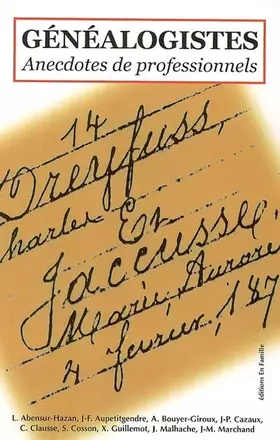 GÉNÉALOGISTES
Anecdotes de professionnels
14
Dreyfuss,
Charles Et
Jaccusse,
Marie, Aurore
4 février, 187
L. Abensur-Hazan, J-F. Aupetitgendre, A. Bouyer-Giroux, J-P. Cazaux,
C. Clausse, S. Cosson, X. Guillemot, J. Malhache, J-M. Marchand
éditions En Famille